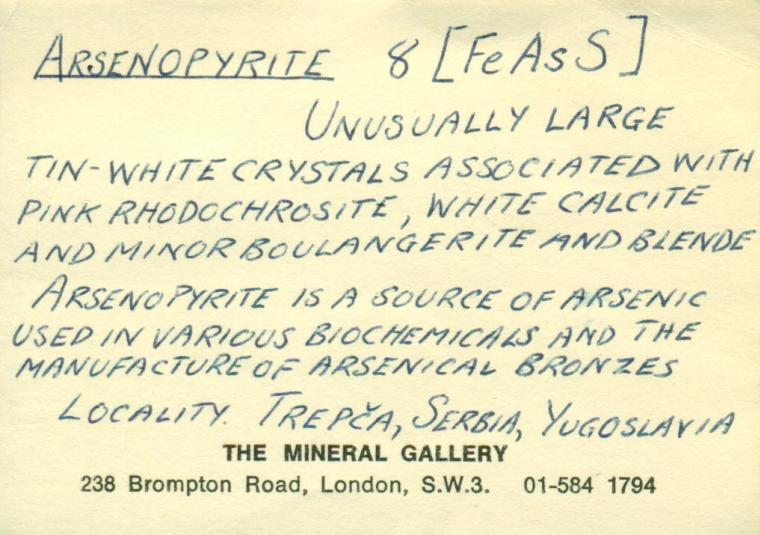 ARSENOPYRITE 8 [FeAsS]
UNUSUALLY LARGE
TIN-WHITE CRYSTALS ASSOCIATED WITH
PINK RHODOCHROSITE, WHITE CALCITE
AND MINOR BOULANGERITE AND BLENDE
ARSENOPYRITE IS A SOURCE OF ARSENIC
USED IN VARIOUS BIOCHEMICALS AND THE
MANUFACTURE OF ARSENICAL BRONZES
LOCALITY. TREPČA, SERBIA, YUGOSLAVIA
THE MINERAL GALLERY
238 Brompton Road, London, S.W.3. 01-584 1794